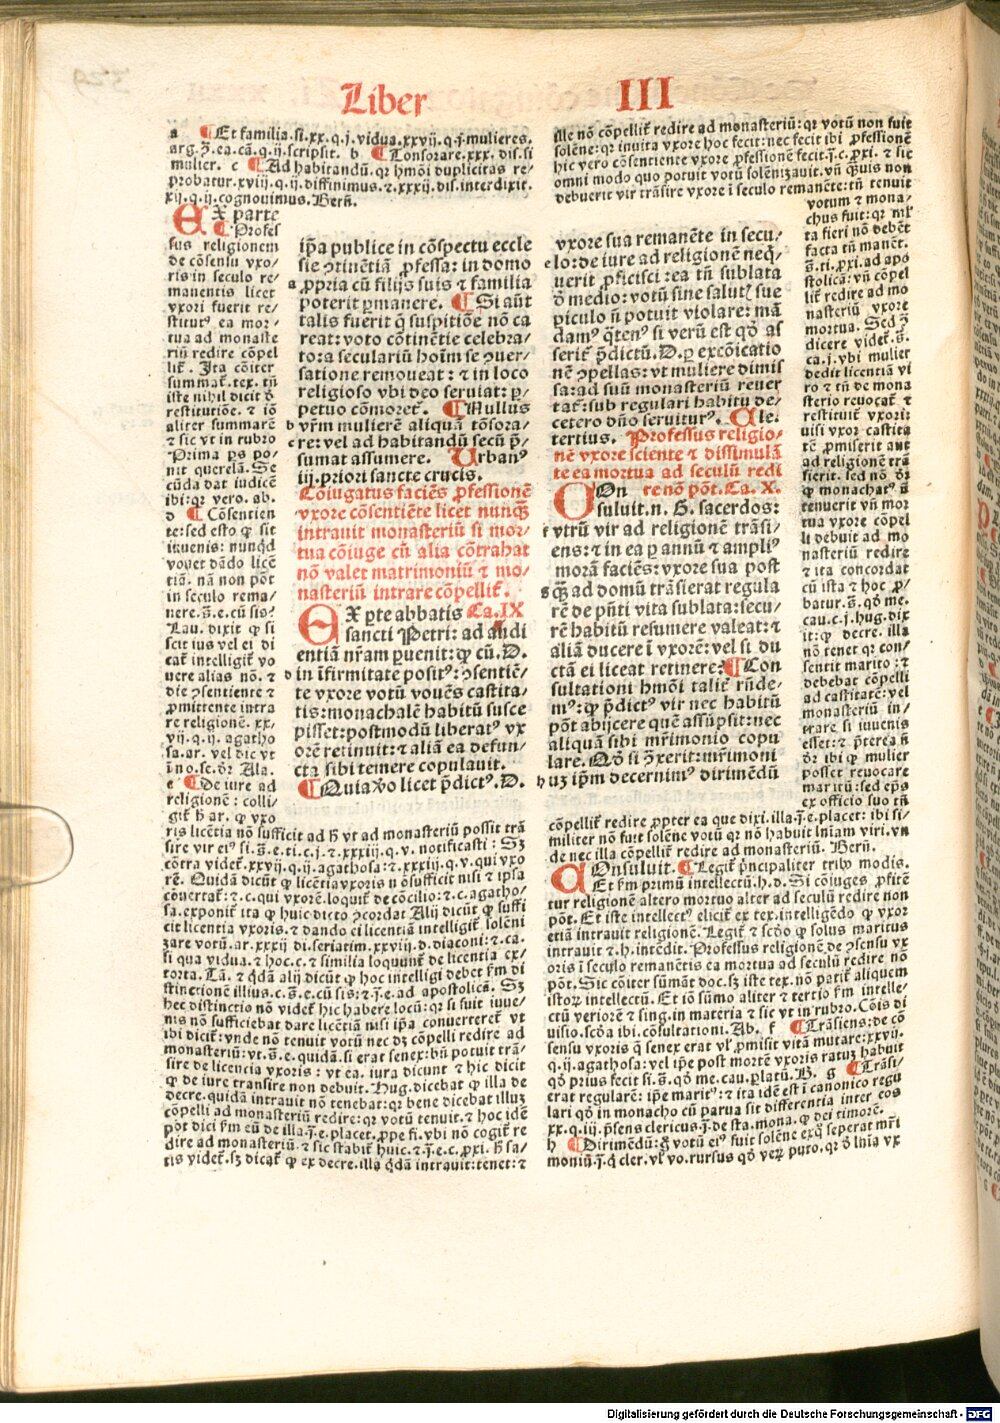 Liber III
a ¶Et familia.si.xx.q.j.vidua.xxvij.q.j.mulieres.
arg.ꝯ̃.ea.cã.q.ij.scripsit. b ¶Consorare.xxx.dis.si
mulier. c ¶Ad habitandũ.qꝛ hmõi duplicitas re
probatur.xviij.q.ij.diffinimus.⁊.xxxij.dis.interdixit.
xij.q.ij.cognouimus.Berñ.
EX parte
¶Profes
sus religionem
de cõsensu vxo/
ris in seculo re/
manentis licet
vxori fuerit re/
stitutꝰ ea mor/
tua ad monaste
riũ redire cõpel
lit᷑. Ita cõiter
summat᷑.tex.tñ
iste nihil dicit ð
restitutiõe.⁊ iõ
aliter summarẽ
⁊ sic vt in rubro
Prima ꝑs po/
nit querelã. Se
cũda dat iudicẽ
ibi:qꝛ vero. ab.
d ¶Cõsentien
te:sed esto ꝙ sit
iuuenis: nunqd
vouet dãdo licẽ
tiã. nã non põt
in seculo rema/
nere.s̃.e.cũ sis?
Lau. dixit ꝙ si
scit ius vel ei di
cat᷑ intelligit᷑ vo
uere alias nõ. ⁊
die ꝯsentiente ⁊
ꝓmittente intra
re religionẽ. xx/
vij.q.ij. agatho
sa.ar. vel dic vt
ĩ no.sc.ðr Ala.
e ¶De iure ad
religionẽ: colli/
git᷑ h̃ ar. ꝙ vxo
ris licẽtia nõ sufficit ad h̃ vt ad monasteriũ possit trã
sire vir eiꝰ si.s̃.e.ti.c.j.⁊.xxxiij.q.v. notificasti: Sʒ
cõtra videt᷑.xxvij.q.ij.agathosa:⁊.xxxiij.q.v.qui vxo
rẽ. Quidã dicũt ꝙ licẽtia vxoris ñ õsufficit nisi ⁊ ipsa
cõuertat᷑:⁊.c.qui vxorẽ.loquit᷑ de cõcilio:⁊.c.agatho/
sa.exponit᷑ ita ꝙ huic dicto ꝯcordat Alij dicũt ꝙ suffi
cit licentia vxoris.⁊ dando ei licentiã intelligit᷑ solẽni
zare votũ.ar.xxxij di.seriatim.xxviij.d.diaconi:⁊.ca.
si qua vidua.⁊ hoc.c.⁊ similia loquunt᷑ de licentia ex/
torta. Tã. ⁊ qdã alij dicũt ꝙ hoc intelligi debet ẜm di
stinctionẽ illius.c.s̃.e.cũ sis:⁊.j̃.e.ad apostolicã. Sʒ
hec distinctio nõ videt᷑ hic habere locũ:qꝛ si fuit iuue/
nis nõ sufficiebat dare licẽtiã nisi ip̃a conuerteret᷑ vt
ibi dicit᷑:vnde nõ tenuit votũ nec dʒ cõpelli redire ad
monasteriũ:vt.s̃.e.quidã.si erat senex:bñ potuit trã/
sire de licencia vxoris: vt ea. iura dicunt ⁊ hic dicit
ꝙ de iure transire non debuit. Hug.dicebat ꝙ illa de
decre.quidã intrauit nõ tenebat:qꝛ bene dicebat illuʒ
cõpelli ad monasteriũ redire:qꝛ votũ tenuit.⁊ hoc idẽ
põt dici ẜm eũ de illa.j̃.e.placet.ꝓpe fi.vbi nõ cogit᷑ re
dire ad monasteriũ.⁊ sic stabit᷑ huic.⁊.j̃.e.c.ꝓxi. h̃ sa/
tis videt᷑.sʒ dicat᷑ ꝙ ex decre.illa qdã intrauit:tenet:⁊
ip̃a publice in cõspectu eccle
sie ꝯtinẽtiã ꝓfessa: in domo
a ꝓpria cũ filijs suis ⁊ familia
poterit ꝑmanere. ¶Si aũt
talis fuerit q̃ suspitiõe nõ ca
reat: voto cõtinẽtie celebra/
to:a seculariũ hoĩm se ꝯuer/
satione remoueat: ⁊ in loco
religioso vbi deo seruiat: ꝑ/
petuo cõmoret᷑. ¶Nullus
b vr̃m mulierẽ aliquã tõsora/
c re: vel ad habitandũ secũ p̃/
sumat assumere. Urbanꝰ
iij.priori sancte crucis.
Coiugatus faciẽs ꝓfessionẽ
vxore cõsentiẽte licet nunqʒ
intrauit monasteriũ si mor/
tua cõiuge cũ alia cõtrahat
nõ valet matrimoniũ ⁊ mo/
nasteriũ intrare cõpellit᷑.
EX ꝑte abbatis Ca.IX
sancti Petri: ad audi
entiã nr̃am ꝑuenit:ꝙ cũ.D.
d in ĩfirmitate positꝰ:ꝯsentiẽ/
te vxore votũ vouẽs castita/
tis:monachalẽ habitũ susce
pisset:postmodũ liberatꝰ vx
orẽ retinuit:⁊ aliã ea defun/
cta sibi temere copulauit.
¶Quia ṽo licet p̃dictꝰ.D.
vxore sua remanẽte in secu/
e lo:de iure ad religionẽ neq̃/
uerit ꝓficisci:ea tñ sublata
ð medio:votũ sine salutꝭ sue
ꝑiculo ñ potuit violare: mã
damꝰ q̃tenꝰ si verũ est qð as
serit᷑ p̃dictũ.D.ꝑ excõicatio
nẽ ꝯpellas:vt muliere dimis
sa:ad suũ monasteriũ reuer
tat᷑:sub regulari habitu de/
cetero dño seruiturꝰ. Ale.
tertius. Professus religio/
nẽ vxore sciente ⁊ dissimulã
te ea mortua ad seculũ redi
COn re nõ põt. Ca. X.
suluit.n. G. sacerdos:
f vtrũ vir ad religionẽ trãsi/
ens:⁊ in ea ꝑ annũ ⁊ ampliꝰ
morã faciẽs:vxore sua post
g qʒ ad domũ trãsierat regula
rẽ de pñti vita sublata:secu/
rẽ habitũ resumere valeat:⁊
aliã ducere ĩ vxorẽ:vel si du
ctã ei liceat retinere: ¶Con
sultationi hmõi talit᷑ rñde/
mꝰ:ꝙ p̃dictꝰ vir nec habitũ
põt abijcere quẽ assũpsit:nec
aliquã sibi mr̃imonio copu
lare. Qð si ꝯ̃xerit:mr̃imoni
h uʒ ip̃m decernimꝰ dirimẽdũ
ille nõ cõpellit᷑ redire ad monasteriũ:qꝛ votũ non fuit
solẽne:qꝛ inuita vxore hoc fecit:nec fecit ibi ꝓfessionẽ
hic vero cõsentiente vxore ꝓfessionẽ fecit.j̃.c.ꝓxi.⁊ sic
omni modo quo potuit votũ solẽnizauit.vñ q̃uis non
debuerit vir trãsire vxore ĩ seculo remanẽte:tñ tenuit
votum ⁊ mona/
chus fuit:qꝛ nil᷑
ta fieri nõ debẽt
facta tñ manẽt.
s̃.ti.ꝓxi.ad apo
stolicã:vñ cõpel
lit᷑ redire ad mo
nasteriũ vxore
mortua. Sed ꝯ̃
dicere videt᷑.s̃.
ca.j.vbi mulier
dedit licentiã vi
ro ⁊ tñ de mona
sterio reuocat᷑ ⁊
restituit᷑ vxori:
nisi vxor castita
tẽ ꝓmiserit aut
ad religionẽ trã
fierit. sed nõ ðr
ꝙ monachatꝰ ñ
tenuerit vñ mor
tua vxore cõpel
li debuit ad mo
nasteriũ redire
⁊ ita concordat
cũ ista ⁊ hoc ꝓ/
batur.s̃.qð me.
cau.c.j.hug.dix
it:ꝙ decre. illa
nõ tenet qꝛ con/
sentit marito: ⁊
debebat cõpelli
ad castitatẽ:vel
monasteriũ in/
trare si iuuenis
esset:⁊ p̃terea ñ
ðr ibi ꝙ mulier
posset reuocare
maritũ:sed ep̃s
ex officio suo tñ
cõpellit᷑ redire ꝓpter ea que dixi.illa.j̃.e.placet: ibi si/
militer nõ fuit solẽne votũ qꝛ nõ habuit lñiam viri.vñ
de nec illa cõpellit᷑ redire ad monasteriũ. Berñ.
COnsuluit. ¶Legit᷑ p̃ncipaliter tribꝰ modis.
Et ẜm primũ intellectũ.h.d. Si cõiuges ꝓfitẽ
tur religionẽ altero mortuo alter ad seculũ redire non
põt. Et iste intellectꝰ elicit᷑ ex tex.intelligẽdo ꝙ vxor
etiã intrauit religionẽ. Legit᷑ ⁊ scðo ꝙ solus maritus
intrauit ⁊.h.intẽdit. Professus religionẽ de ꝯsensu vx
oris ĩ seculo remanẽtis ea mortua ad seculũ redire nõ
põt. Sic cõiter sũmãt doc.sʒ iste tex.nõ patit᷑ aliquem
istoꝝ intellectũ. Et iõ sũmo aliter ⁊ tertio ẜm intelle/
ctũ veriorẽ ⁊ sing.in materia ⁊ sic vt in rubro. Cõis di
uisio.scða ibi.cõsultationi. Ab. f ¶Trãsiens:de cõ
sensu vxoris q̃ senex erat vl᷑ ꝓmisit vitã mutare:xxvij.
q.ij.agathosa: vel ip̃e post mortẽ vxoris ratuʒ habuit
qð prius fecit si.s̃.qð me.cau.ꝑlatũ. B. g ¶Trãsi/
erat regularẽ: ip̃e maritꝰ:⁊ ita idẽ est ĩ canonico regu
lari qð in monacho cũ parua sit differentia inter eos
xx.q.iij.p̃sens clericus.j̃.de sta.mona.ꝙ dei timorẽ.
h ¶Dirimẽdũ:g̃ votũ eiꝰ fuit solẽne exq̃ seperat mr̃i
moniũ.j̃.q̃ cler.vl᷑ vo.rursus qð veꝝ puto.qꝛ ð lñia vx
Digitalisierung gefördert durch die Deutsche Forschungsgemeinschaft - DFG